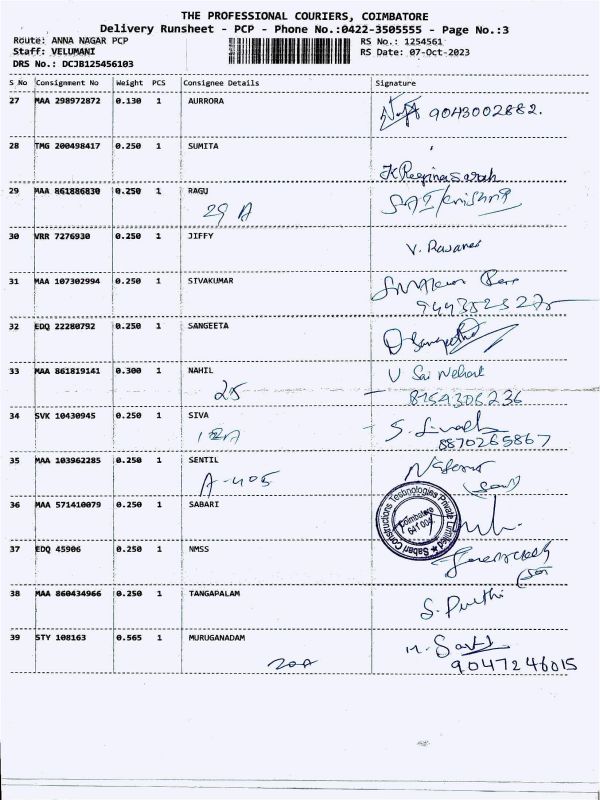 THE PROFESSIONAL COURIERS, COIMBATORE
Delivery Runsheet - PCP - Phone No.:0422-3505555 - Page No.:3
Route: ANNA NAGAR PCP RS No.: 1254561
Staff: VELUMANI RS Date: 07-Oct-2023
DRS No.: DCJB125456103
S No Consignment No Weight PCS Consignee Details Signature
27 MAA 298972872 0.130 1 AURRORA
9043002882.
28 TMG 200498417 0.250 1 SUMITA
K Regina Sarah
29 MAA 861886830 0.250 1 RAGU
29 A SAI krishna
30 VRR 7276930 0.250 1 JIFFY
V.
31 MAA 107302994 0.250 1 SIVAKUMAR
32 EDQ 22280792 0.250 1 SANGEETA
D Sangeetha
33 MAA 861819141 0.300 1 NAHIL
25 V Sai
8754306236
34 SVK 10430945 0.250 1 SIVA
12A S.
8870265867
35 MAA 103962285 0.250 1 SENTIL
A-405
36 MAA 571410079 0.250 1 SABARI
Sabari Constructions Technologies Private Limited
Coimbatore
641 005
37 EDQ 45906 0.250 1 NMSS
38 MAA 860434966 0.250 1 TANGAPALAM
S.
39 STY 108163 0.565 1 MURUGANADAM
20A 9047246015